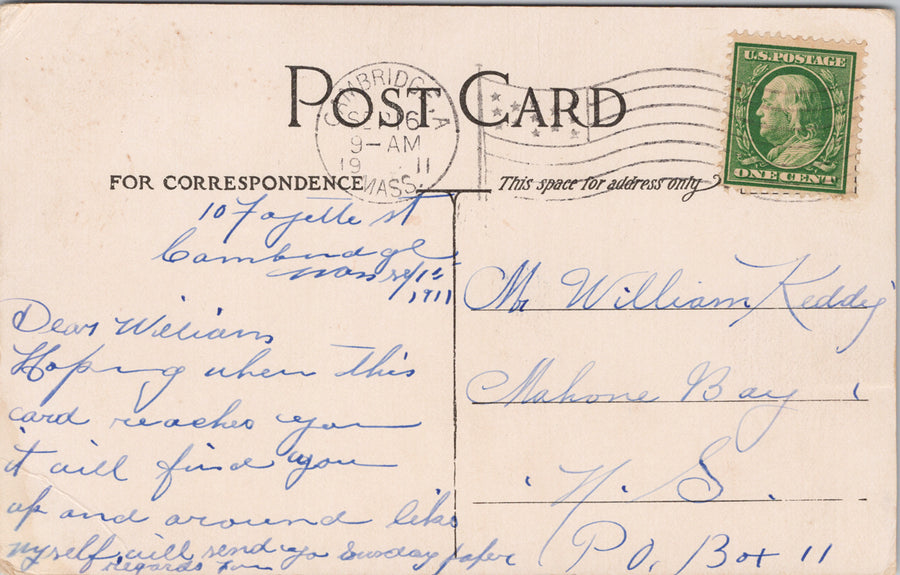 U.S. POSTAGE
ONE CENT
POST CARD
CAMBRIDGE A
SEP 16
9-AM
19 11
MASS.
FOR CORRESPONDENCE
This space for address only
10 Fayette st
Cambridge
Mass
1911
Dear William
Hoping when this
card reaches you
it will find you
up and around like
myself will send yo Sunday paper
regards
Mr William Keddy
Mahone Bay
N. S.
P.O. Box 11